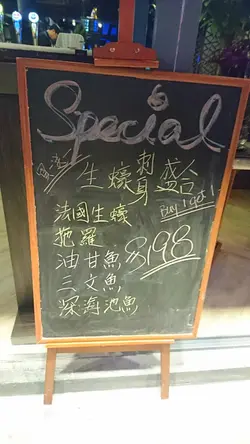 Special
生蠔刺身盛合
Buy 1 get 1
法國生蠔
拖羅
油甘魚
三文魚
深海池魚
$198